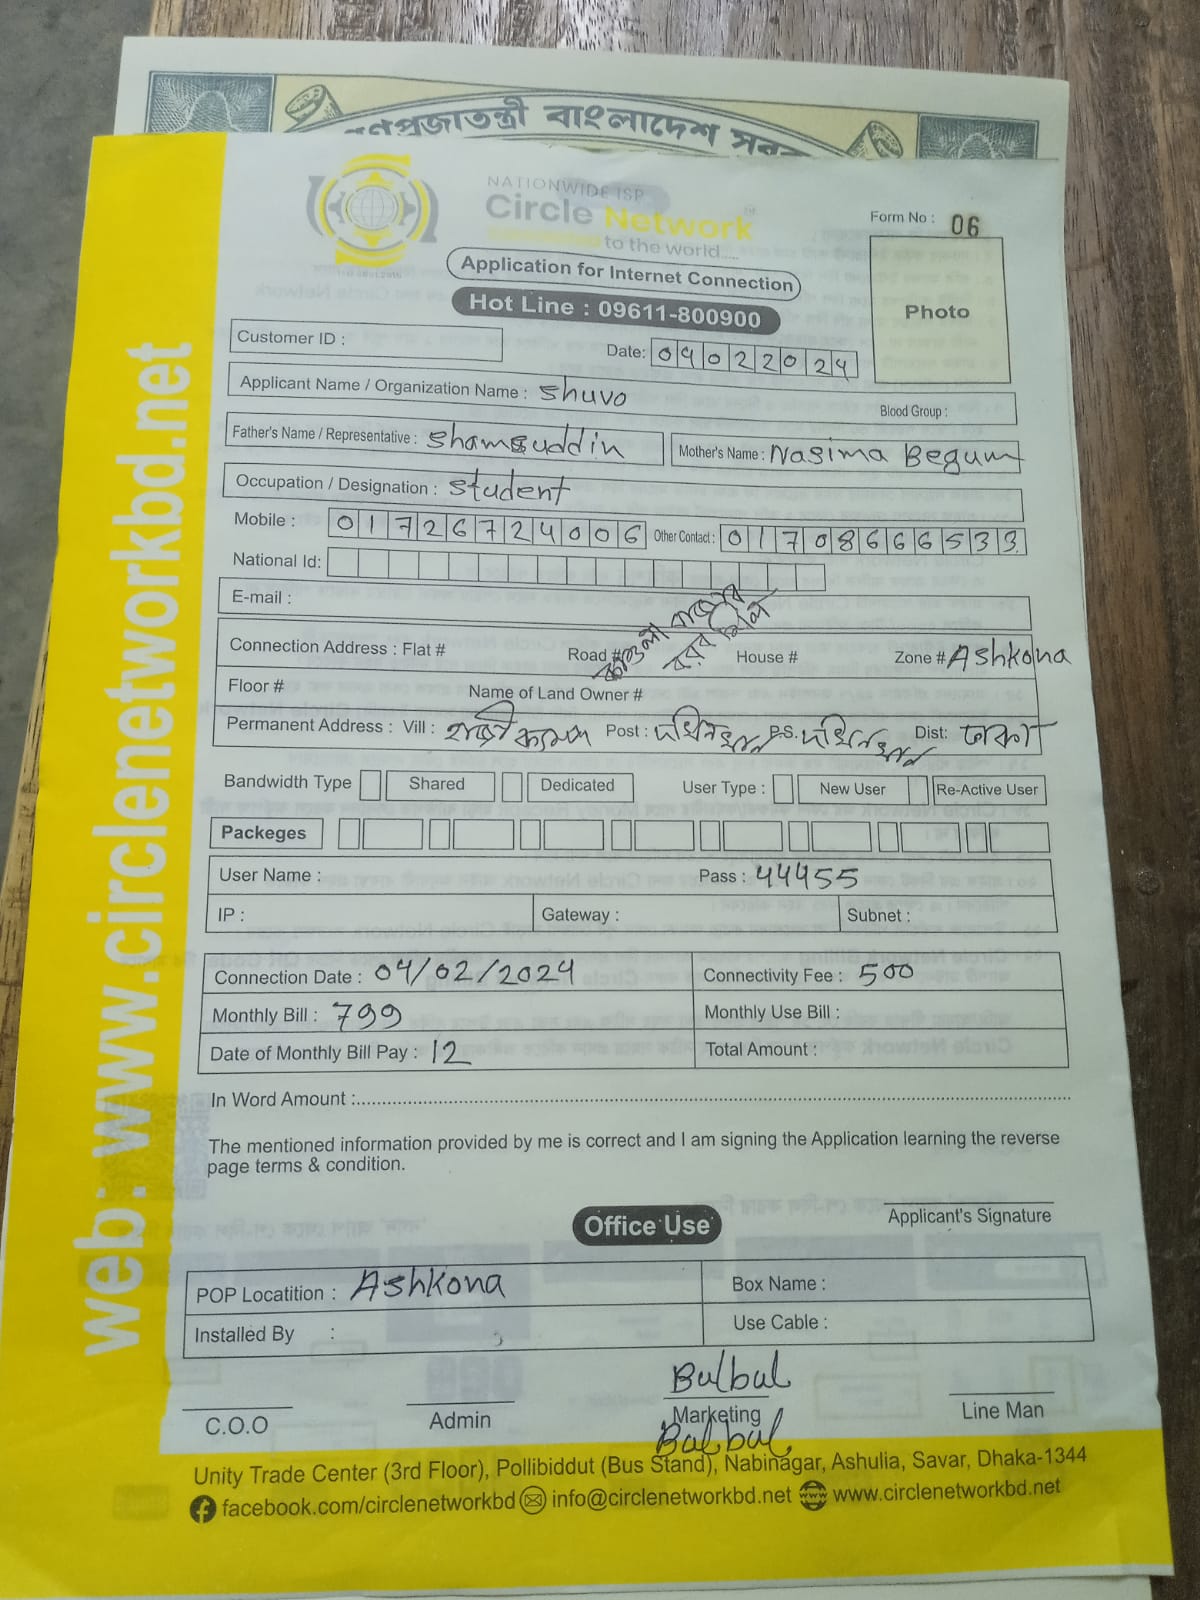 গণপ্রজাতন্ত্রী বাংলাদেশ সরক
NATIONWIDE ISP
Circle Network
to the world.....
Form No : 06
Application for Internet Connection
Hot Line : 09611-800900
Photo
Customer ID :
Date: 04022024
Applicant Name / Organization Name : Shuvo
Blood Group :
Father's Name / Representative : Shamsuddin Mother's Name : Nasima Begum
Occupation / Designation : Student
Mobile : 01726724006 Other Contact : 01708666533
National Id:
E-mail :
Connection Address : Flat # Road # House # Zone # Ashkona
Floor # Name of Land Owner #
Permanent Address : Vill : Post : P.S. Dist: ঢাকা
Bandwidth Type Shared Dedicated User Type : New User Re-Active User
Packeges
User Name : Pass : 44455
IP : Gateway : Subnet :
Connection Date : 04/02/2024 Connectivity Fee : 500
Monthly Bill : 799 Monthly Use Bill :
Date of Monthly Bill Pay : 12 Total Amount :
In Word Amount :
The mentioned information provided by me is correct and I am signing the Application learning the reverse
page terms & condition.
Applicant's Signature
Office Use
POP Locatition : Ashkona Box Name :
Installed By : Use Cable :
Bulbul
C.O.O Admin Marketing Line Man
Bulbul
Unity Trade Center (3rd Floor), Pollibiddut (Bus Stand), Nabinagar, Ashulia, Savar, Dhaka-1344
facebook.com/circlenetworkbd info@circlenetworkbd.net www.circlenetworkbd.net
web: www.circlenetworkbd.net